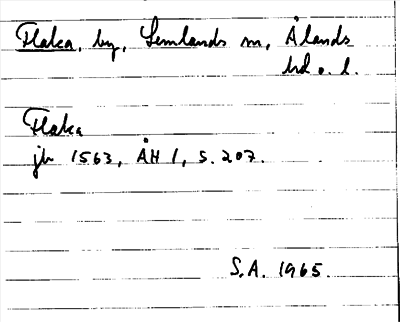 Flaka, by, Lemlands sn, Ålands
hd o. l.
Flaka
jb 1563, ÅH 1, s. 207.
S.A. 1965.